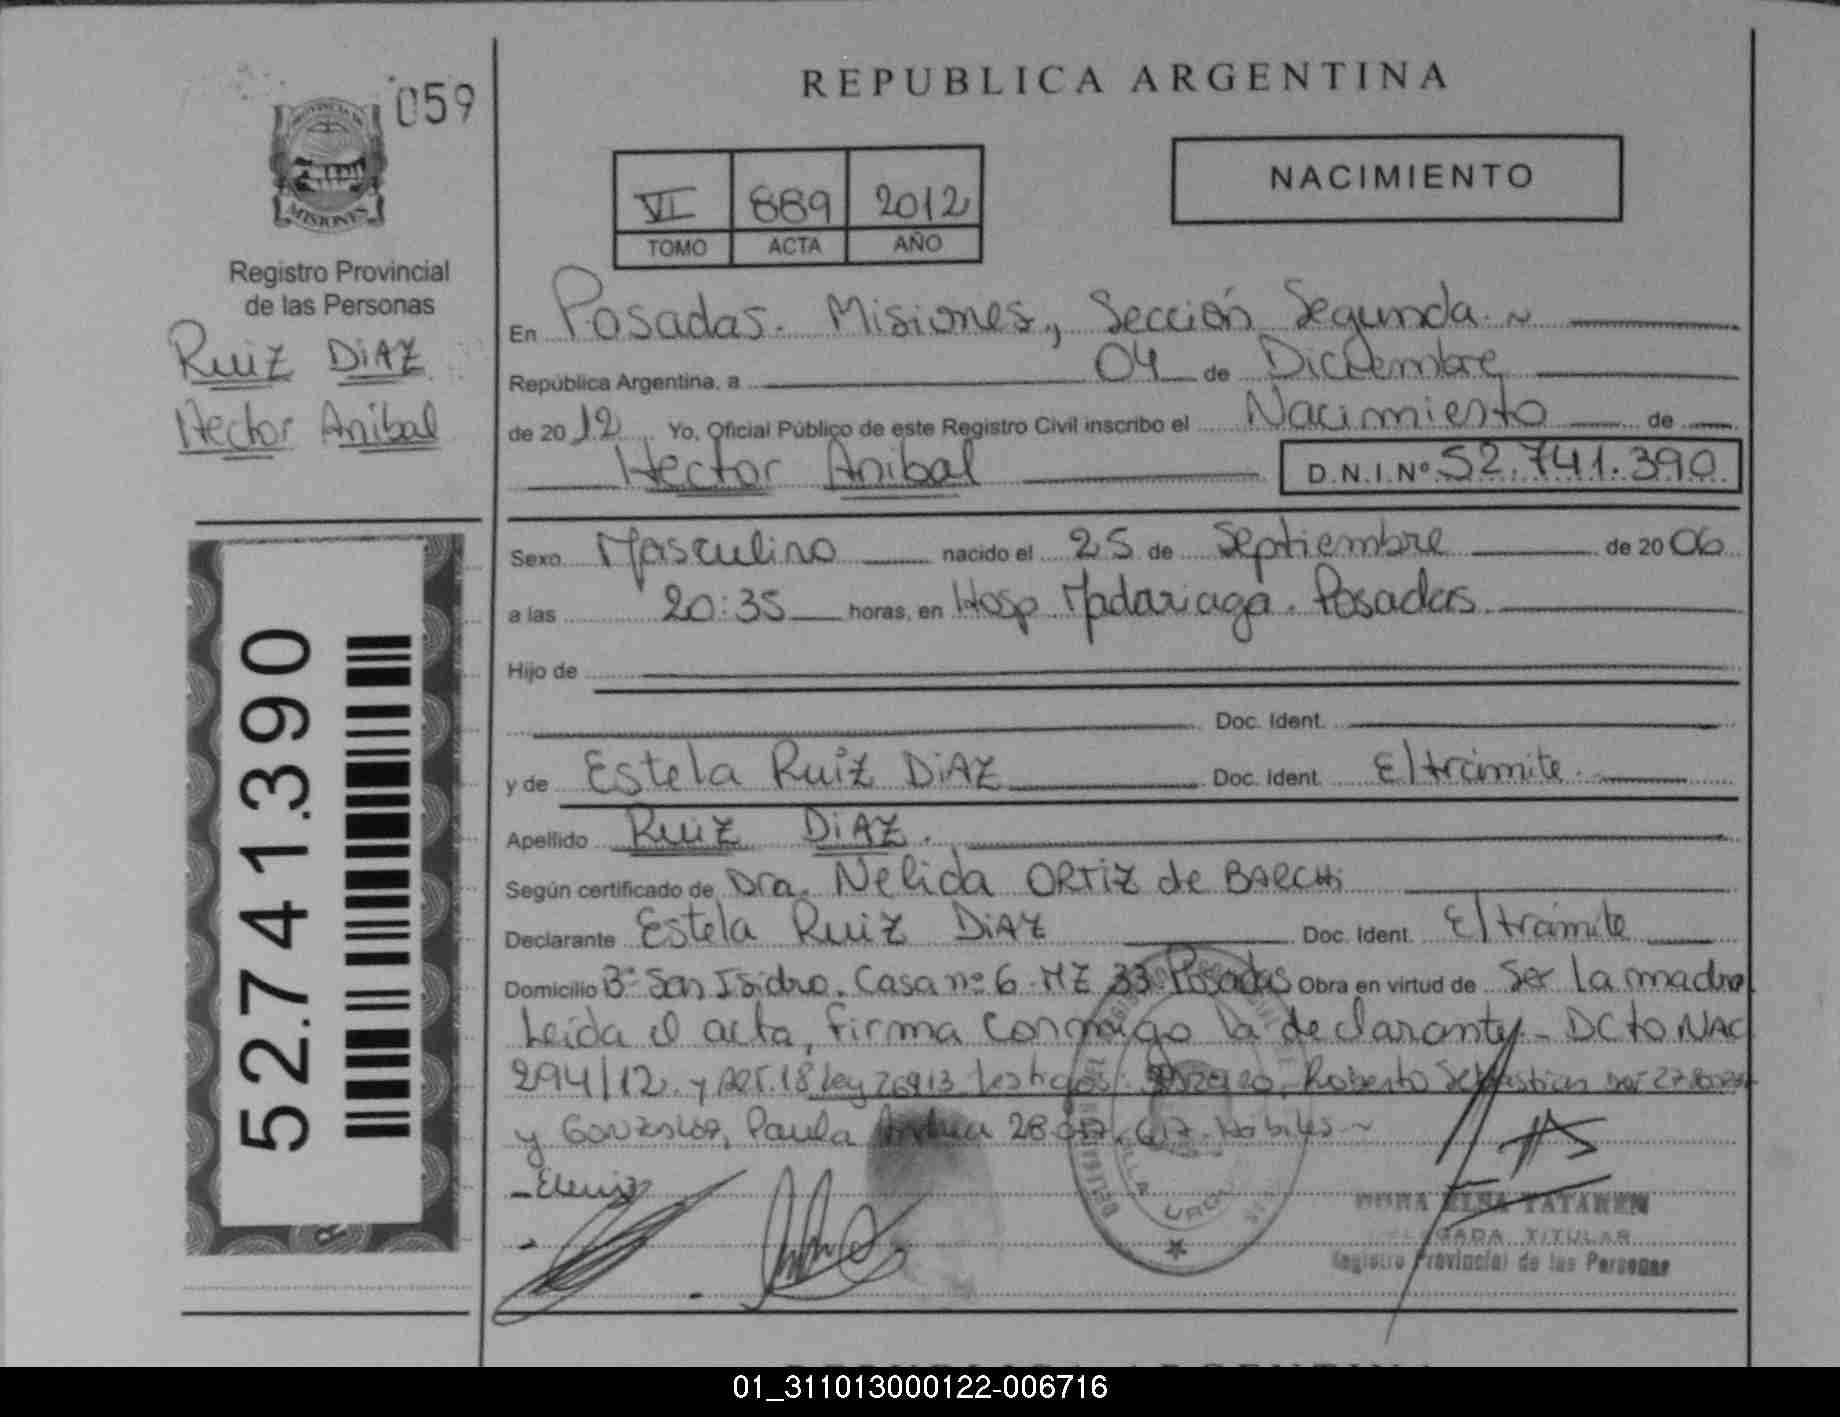 059
MISIONES
Registro Provincial
de las Personas
Ruiz DiAZ
Hector Anibal
52.741.390
REPUBLICA ARGENTINA
VI 889 2012
TOMO ACTA AÑO
NACIMIENTO
En Posadas. Misiones, Sección Segunda.
República Argentina, a 04 de Diciembre
de 2012 Yo, Oficial Público de este Registro Civil inscribo el Nacimiento de
Hector Anibal D.N.I.Nº 52.741.390
Sexo Masculino nacido el 25 de Septiembre de 2006
a las 20:35 horas, en Hosp Madariaga. Posadas
Hijo de
Doc. Ident.
y de Estela Ruiz DiAZ Doc. Ident. E/trámite
Apellido Ruiz DiAZ.
Según certificado de Dra. Nelida ORTiZ de BARCHi
Declarante Estela Ruiz DiAZ Doc. Ident. E/trámite
Domicilio Bº San Isidro. Casa nº 6 - MZ 33 Posadas Obra en virtud de Ser la madre
Leida el acta, firma conmigo la declarante - DCto NAC
294/12 y ART. 18 Ley 26913 testigos: Roberto Sebastian
y Paula 28 Habiles
DORA ELSA TATAREN
DELEGADA TITULAR
Registro Provincial de las Personas
REPUBLICA ARGENTINA
01_311013000122-006716